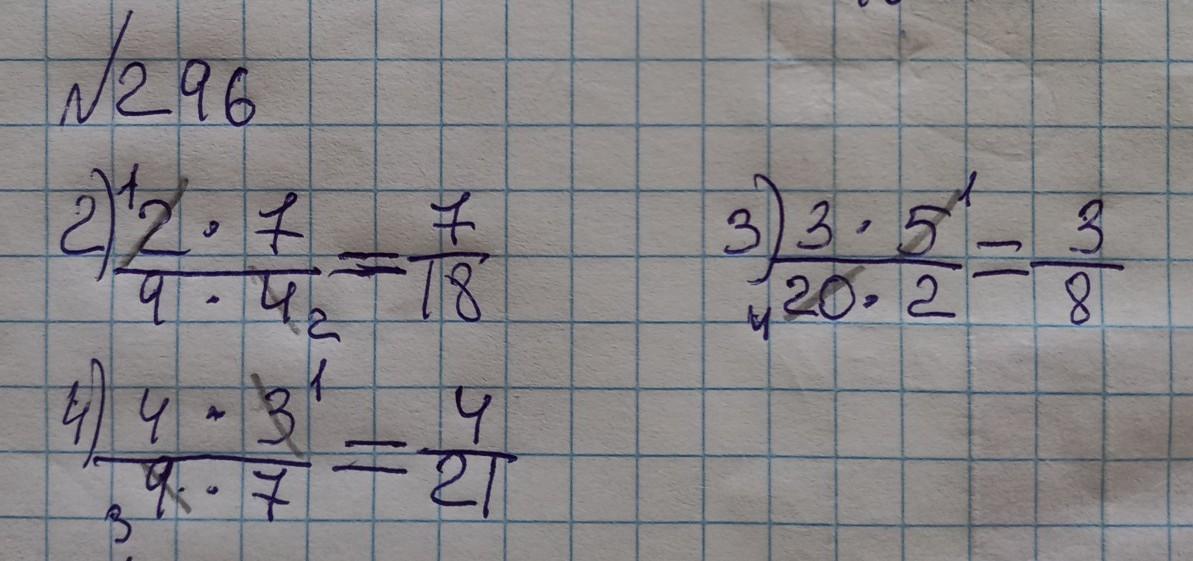 №296
2) ¹2 · 7 / 9 · 4₂ = 7/18
3) 3 · 5¹ / ₄20 · 2 = 3/8
4) 4 · 3¹ / ₃9 · 7 = 4/21